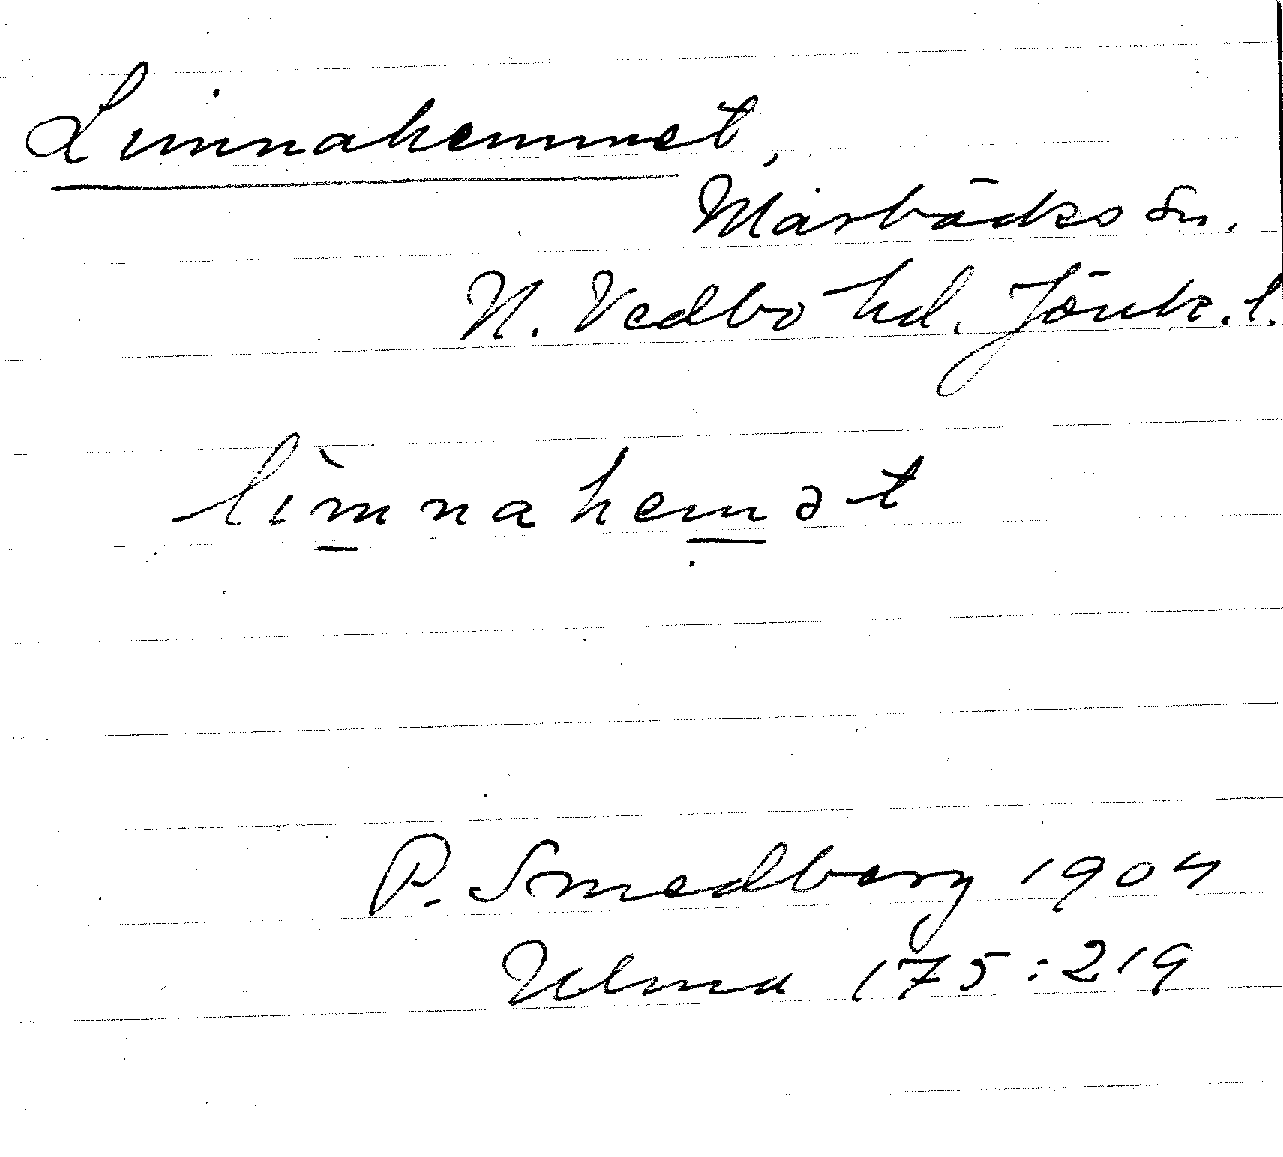 Limnahemmet,
Marbäcks sn.
N. Vedbo hd. Jönk. l.
limnahemət
P. Smedberg 1904
Ulma 175:219